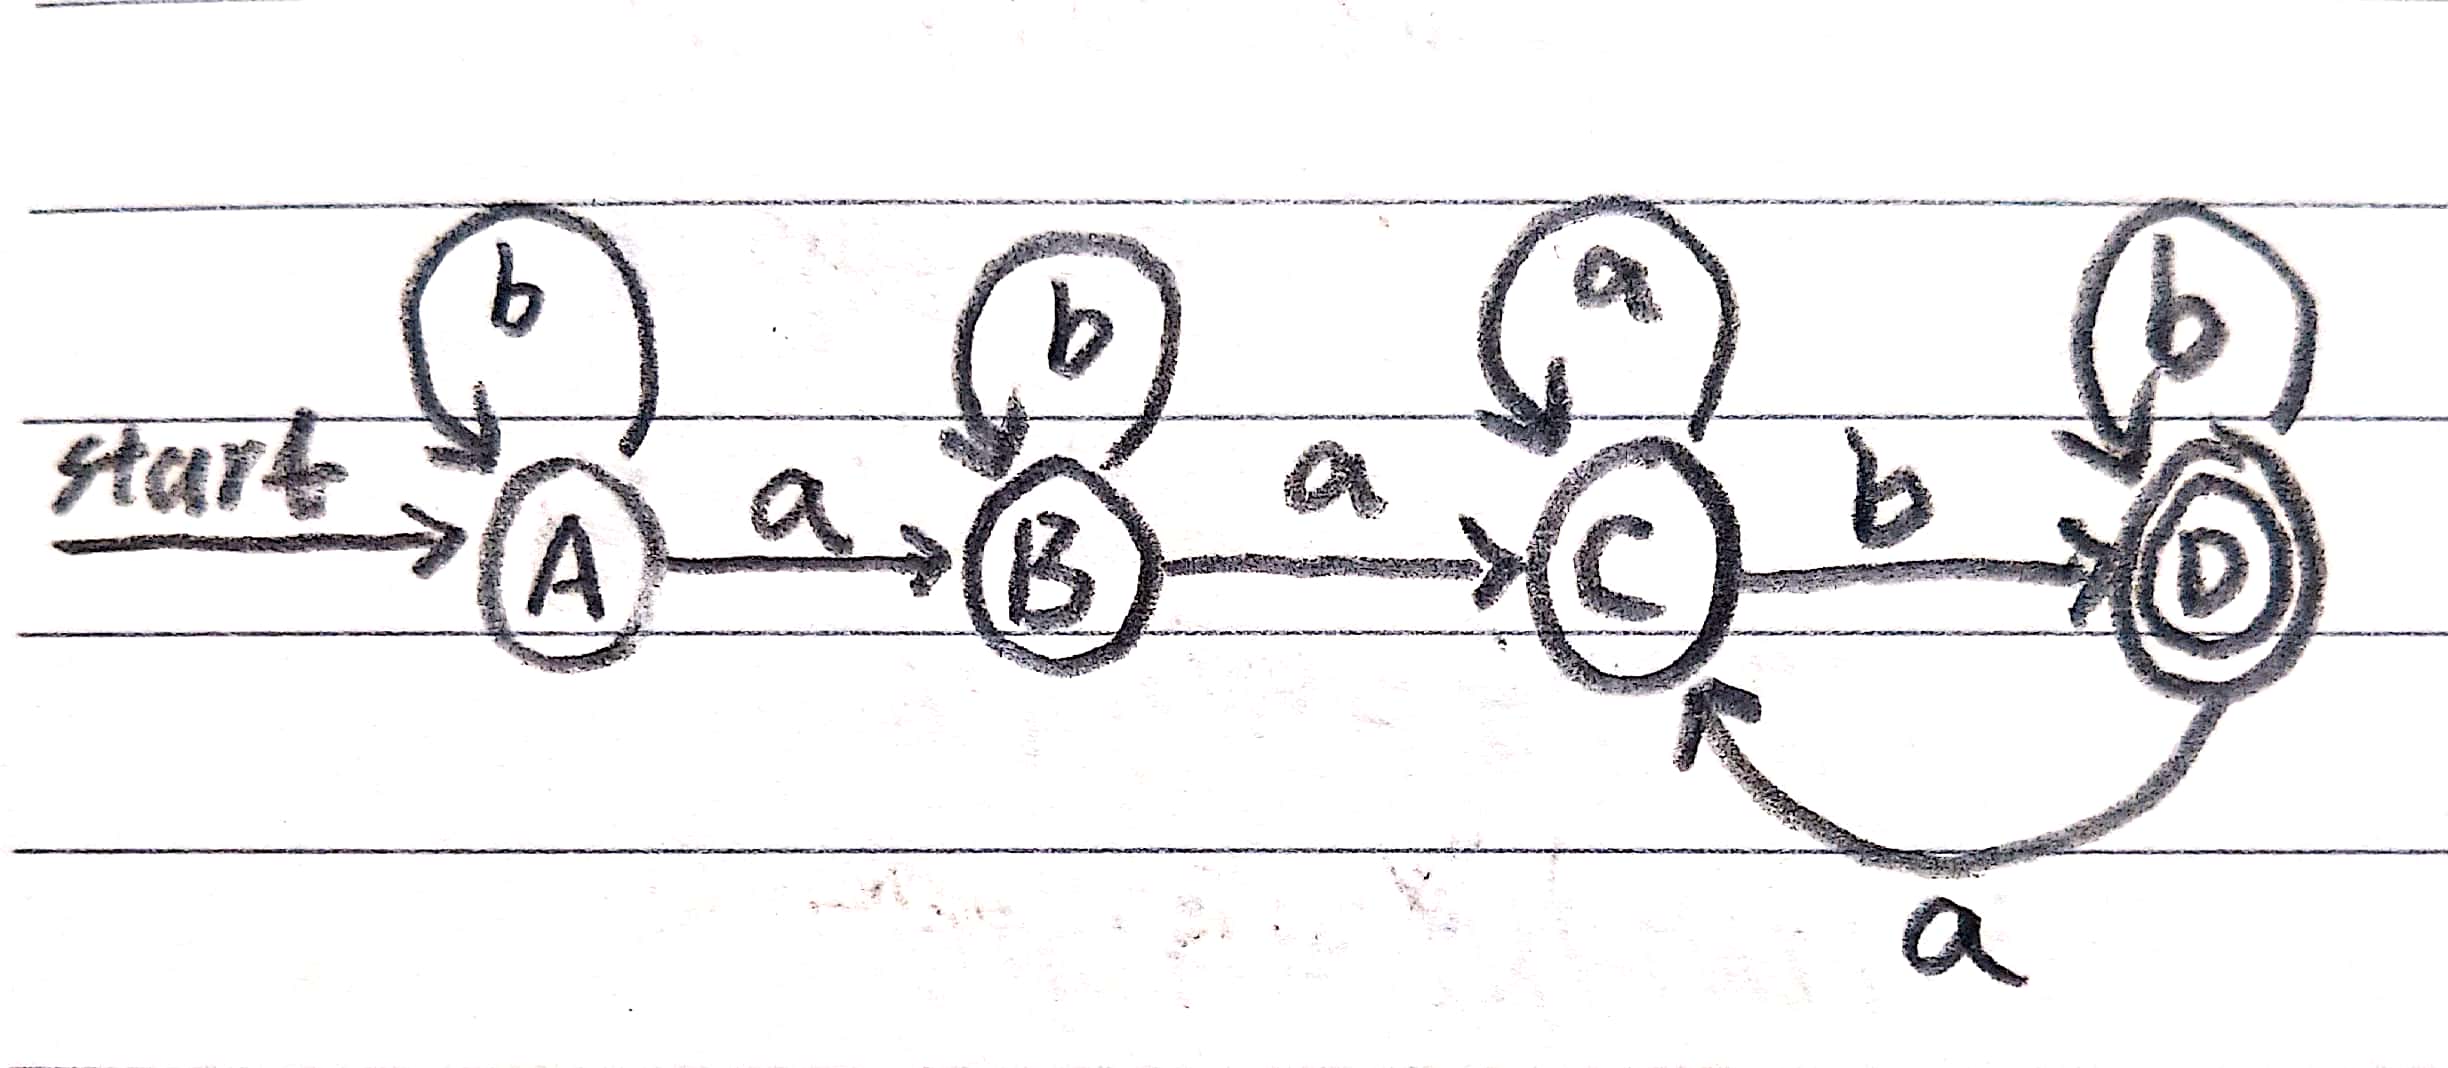 b b a b
start
a a b
A B C D
a